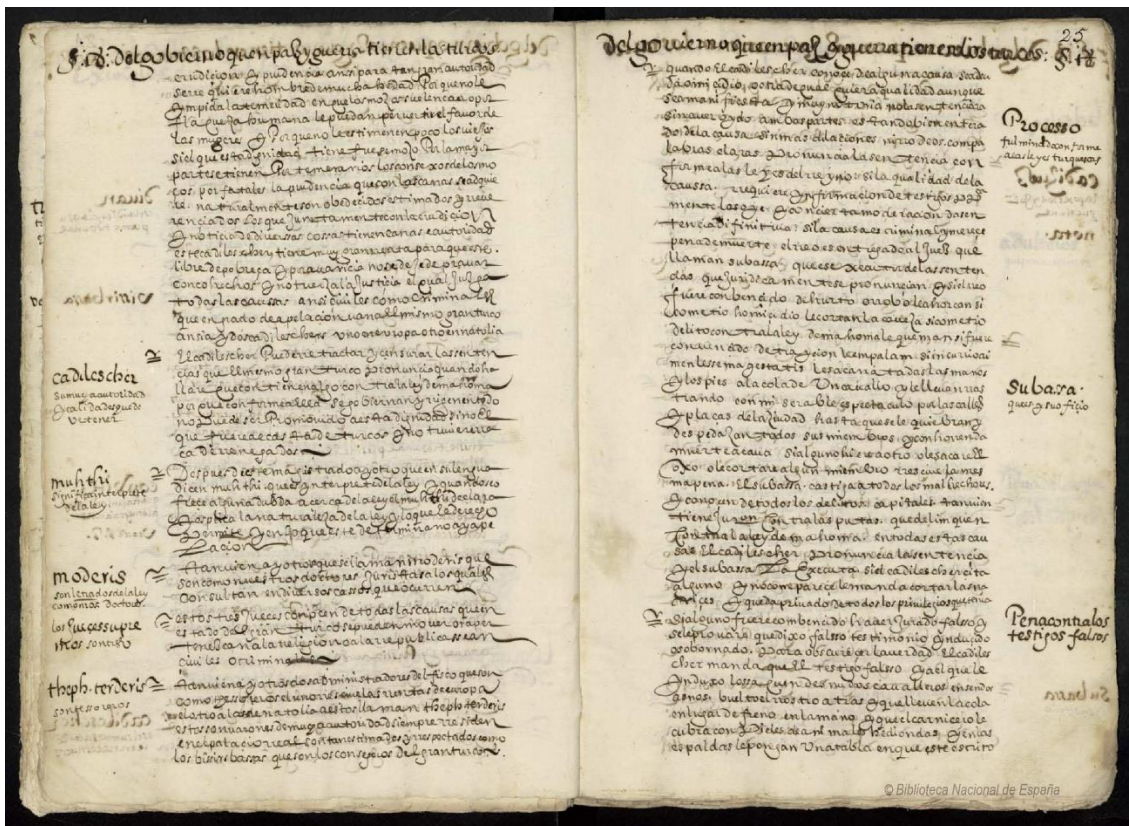 del gobierno que en paz y guerra tienen los turcos
erudicion y prudencia ansi para tan gran autoridad
se requiere hombre de mucha hedad. Porque no le
ympida la temeridad en que la
las mugeres y Porque no le estimen en poco los viejos
si el que esta dignidad tiene fuese mozo Por la mayor
parte se tienen Por temerarios los consexos de los mo
ços por faltales la prudencia que con las canas se adquie
re. naturalmente son obedecidos estimados y reve
renciados los que Juntamente con la erudiçion
y noticia de diversas cosas tienen canas e autoridad
este cadilescher tiene muy gran renta para que este
libre de pobreça y por avaricia no se deje depravar
con cohechos y no tuerza la Justicia el qual Juzga
todas las caussas ansi civiles como criminales
que en grado de apelacion van al mismo gran turco
ansi ay dos cadileschers uno en europa otro en natolia
El cadilescher Puede retractar y censurar las senten
cias que el mismo gran turco Pronuncia quando ha
llare que contienen algo contra la ley de mahoma
por que conforme a ella se gobiernan y rigen en todo
no puede ser Promovido a esta dignidad sino el
que fuere de casta de turcos y no tuviere ra
ça de renegados
cadilescher
su mucha autoridad
y calidades que de
ve tener
Despues de este magistrado ay otro que en su lengua
dicen muhthi que es interprete de la ley y quando se o
frece alguna dubda acerca de la ley el muhthi declara
y explica la naturaleza de la ley y lo que el derecho
Permite y en lo que este determina no ay ape
lacion
muhthi
significa interprete
de la ley
Tanvien ay otros que se llaman moderis que
son como nuestros doctores Juristas a los quales
consultan en diversos casos que ocurren
moderis
son letrados de la ley
como nros Doctores
estos tres Jueces conocen de todas las causas que en
estado del gran turco se pueden mover ora per
tenescan a la religion o a la republica sean
civiles o criminales
los Jueces supre
mos son estos
Tanvien ay otros dos administradores del fisco que son
como tesoreros el uno resçive las rentas de europa
y el otro a las de natolia a estos llaman theph terderis
estos son varones de mucha autoridad siempre residen
en el palacio real son tan estimados y respectados como
los bisiris bassas que son los consegeros del gran turco
theph. terderis
son tesoreros
25
del govierno que en paz y guerra tienen los turcos
quando el cadilescher conoçe de alguna causa sea du
da omicidio o otra de qualquiera qualidad aunque
sea manifiesta y muy notoria no la sentenciara
sin aver oydo ambas partes estando bien entera
do de la causa sin mas dilaciones ny rodeos con pa
labras claras Pronuncia la sentencia con
forme a las leyes del reyno si la qualidad de la
caussa requiere ynformacion de testigos
mente los oye y con cierta moderacion da sen
tencia difinitiva si la causa es criminal y merece
pena de muerte el reo es entregado al Juez que
llaman subassa que es executor de las senten
cias que juridicamente se pronuncian y si el reo
fuere conbencido de hurto o robo le ahorcan si
cometio homicidio le cortan la caveza si cometio
delito contra la ley de mahoma le queman si fuere
convencido de traycion le empalan si in curri en cri
men lesse magestatis le sacan atadas las manos
y los pies a la cola de Un cavallo y le llevan ras
trando con miserable espectaculo por las calles
y plaças de la ciudad hasta que se le quiebran y
despedazan todos sus miembros y con horrenda
muerte acava si alguno hiere a otro o le saca el
oxo o le cortare algun miembro rescive la mes
ma pena. El subassa castiga a todos los malhechores
y como en todos los delitos capitales tanvien
tiene Juron contra las putas que delinquen
contra la ley de mahoma. en todas estas cau
sas El cadilescher Pronuncia la sentencia
y el subassa La executa si el cadilescher cita
alguno y no comparece le manda cortar las na
rices y queda privado de todos los privilegios que tenia
Processo
fulminado conforme
a las leyes turquescas
nota
subassa.
que es y su oficio
Si alguno fuere combencido haver Jurado falso y
se le provare que dixo falsso testimonio ynducido
o sobornado. Para obscurecer la verdad El cadiles
cher manda que El testigo falsso y al que le
ynduxo los saquen desnudos cavalleros en sendos
asnos buelto el rostro atras y que lleven la cola
en lugar de freno en la mano y que el carnicero le
cubra con Pieles de animales hediondas y en las
espaldas le pongan Una tabla en que este escrito
Pena contra los
testigos falsos
© Biblioteca Nacional de España